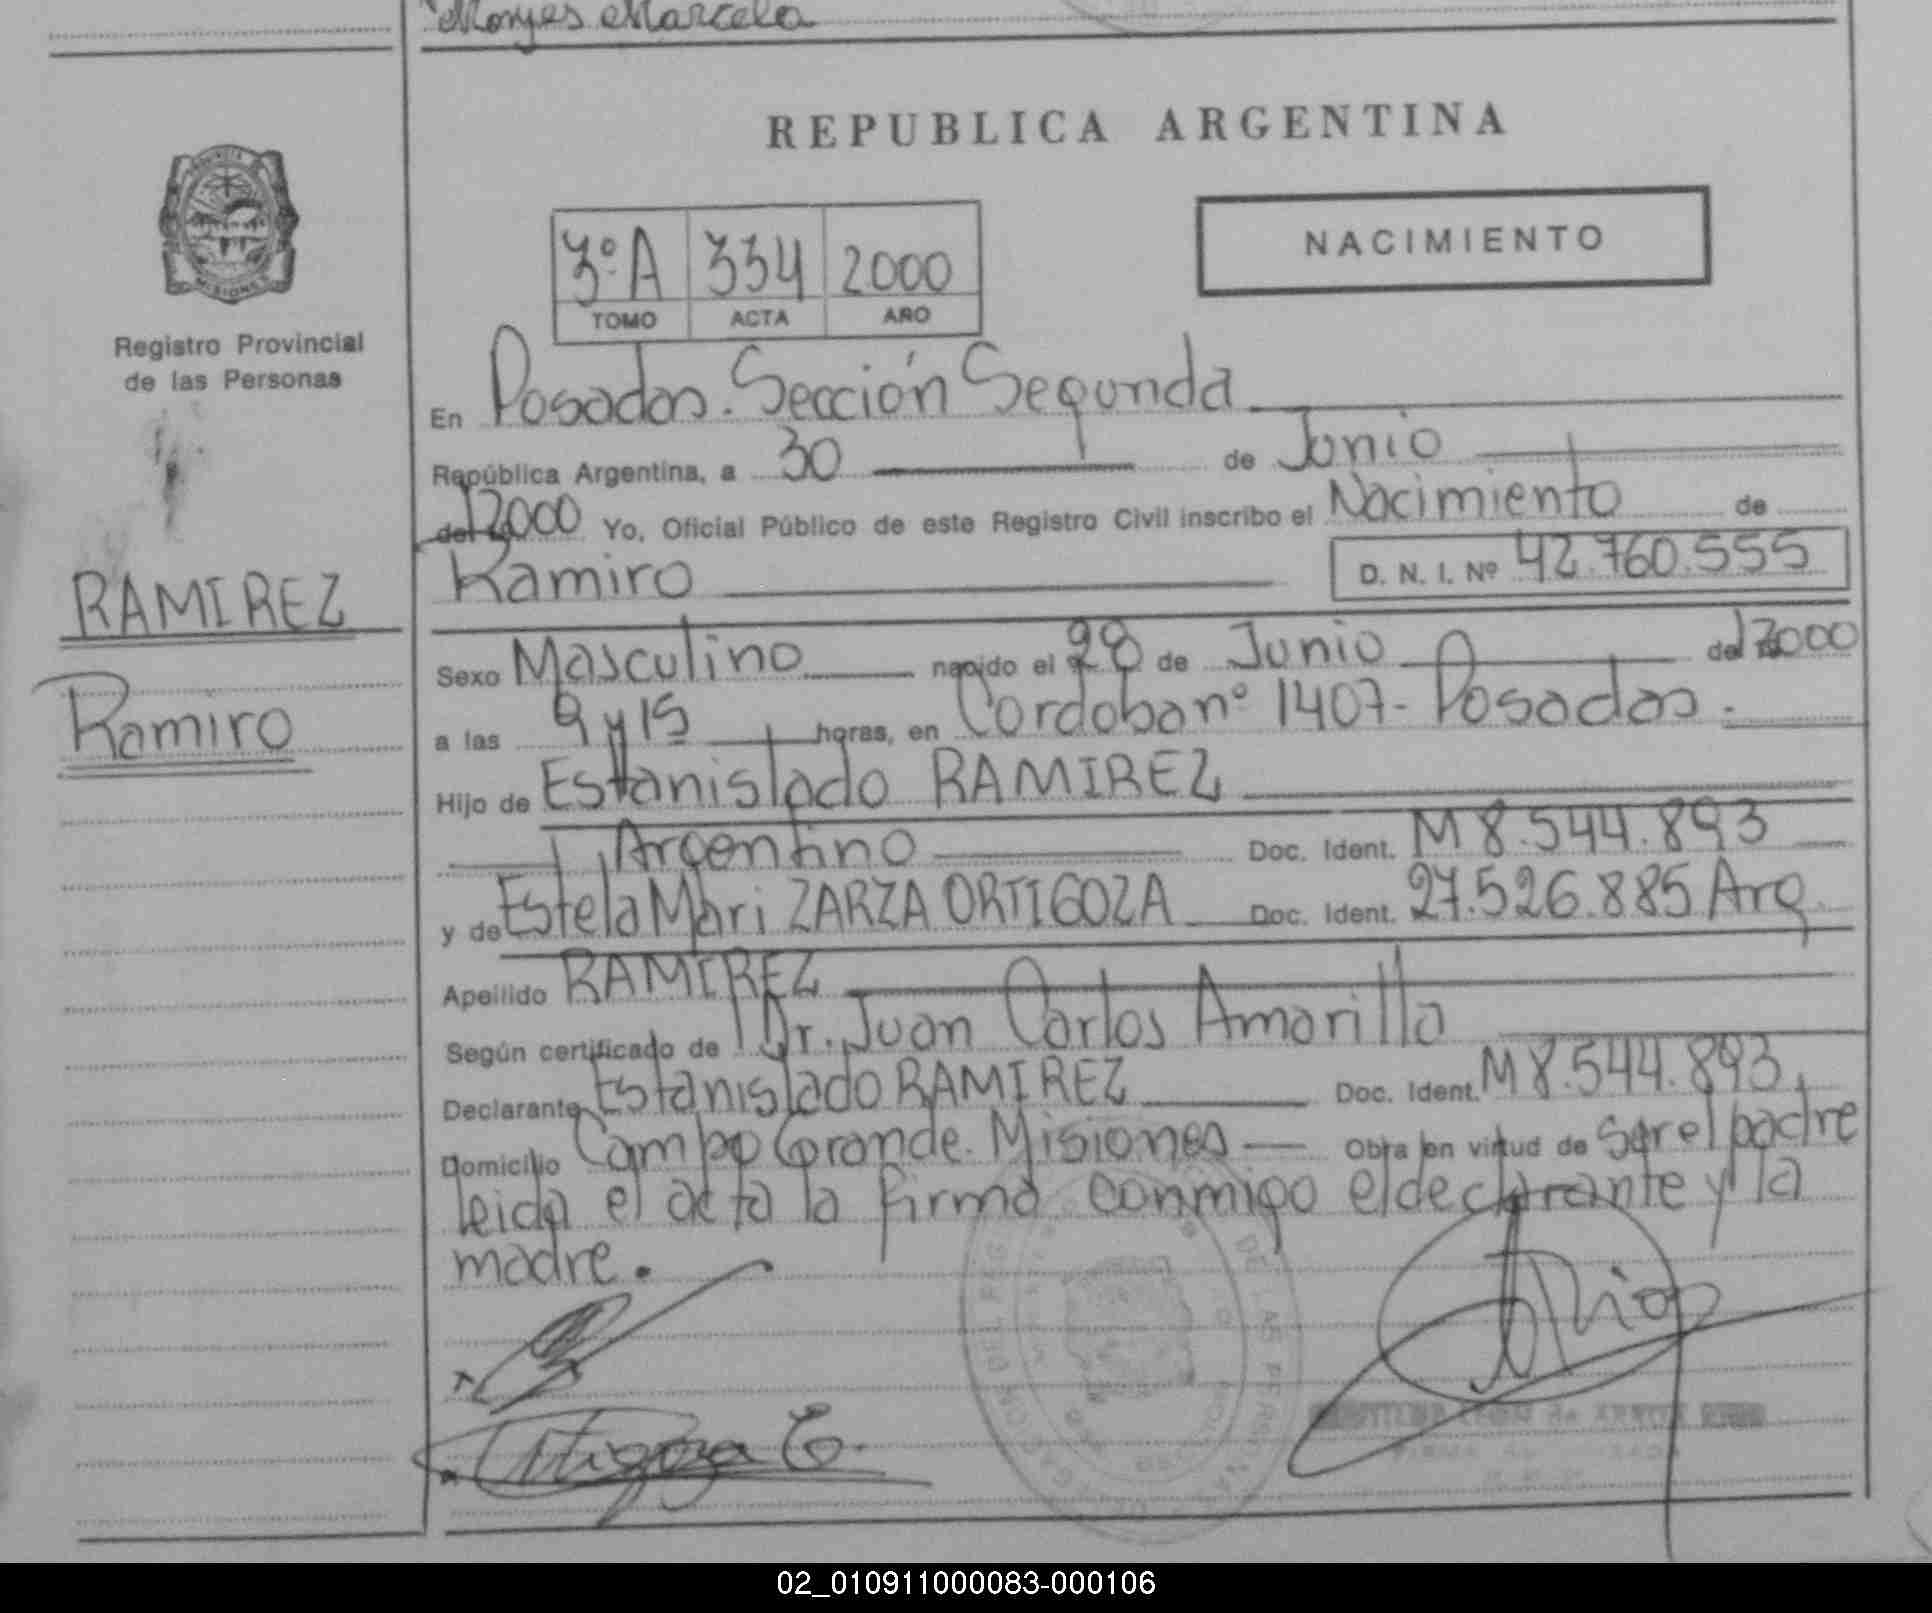 Monjes Marcela
REPUBLICA ARGENTINA
NACIMIENTO
3º A 334 2000
TOMO ACTA AÑO
PROVINCIA
MISIONES
Registro Provincial
de las Personas
RAMIREZ
Ramiro
En Posadas. Sección Segunda
República Argentina, a 30 de Junio
del 2000 Yo, Oficial Público de este Registro Civil inscribo el Nacimiento de
Ramiro D. N. I. Nº 42.760.555
Sexo Masculino nacido el 28 de Junio del 2000
a las 9 y 15 horas, en Cordoba nº 1407- Posadas.
Hijo de Estanislado RAMIREZ
Argentino Doc. Ident. M 8.544.893
y de Estela Mari ZARZA ORTIGOZA Doc. Ident. 27.526.885 Arg.
Apellido RAMIREZ
Según certificado de Dr. Juan Carlos Amarilla
Declarante Estanislado RAMIREZ Doc. Ident. M 8.544.893
Domicilio Campo Grande. Misiones Obra en virtud de Ser el padre
leida el acta la firma conmigo el declarante y la
madre.
DE LAS PERSONAS
02_010911000083-000106